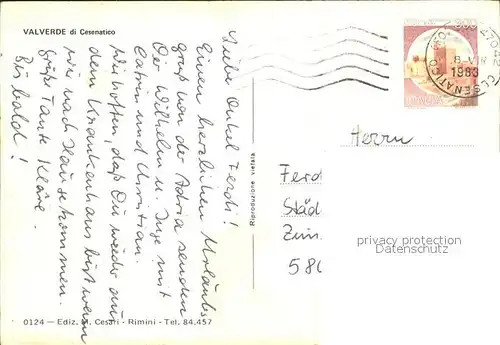 VALVERDE di Cesenatico
Liebe Onkel Ferdi!
Einen herzlichen Urlaubs
gruß von der Adria senden
Dir Wilhelm u. Inge mit
Catrin und Christian.
Wir hoffen, daß Du wieder aus
dem Krankenhaus bist wenn
wir nach Hause kommen.
grüße Tante Kläre.
Bis bald!
0124 - Ediz. M. Cesari - Rimini - Tel. 84.457
Riproduzione vietata
300
ITALIA
47042 CESENATICO (FO)
8-VII
1983
Herrn
Ferd
Städ
Zim
580
privacy protection
Datenschutz